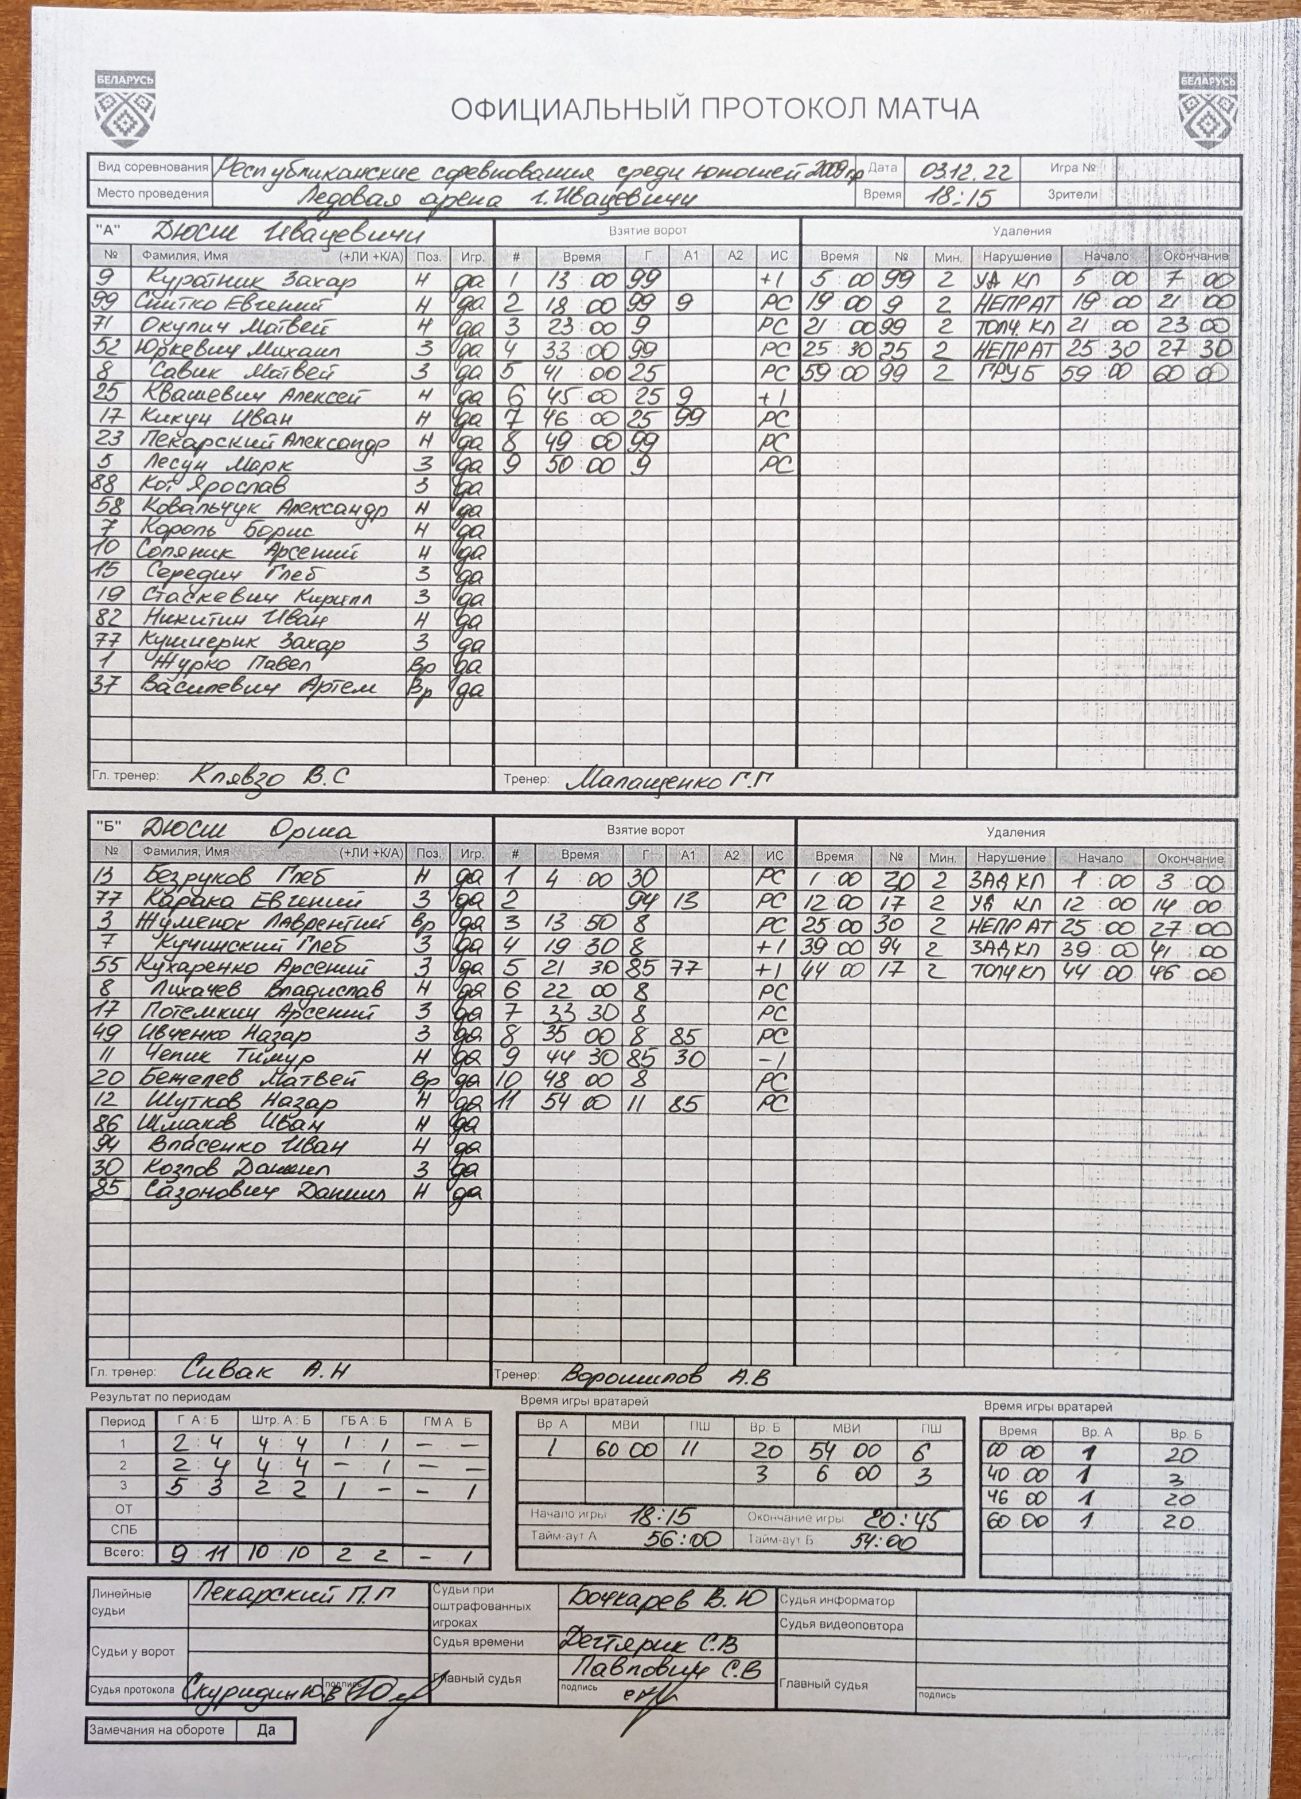 БЕЛАРУСЬ БЕЛАРУСЬ
ОФИЦИАЛЬНЫЙ ПРОТОКОЛ МАТЧА
Вид соревнования Республиканские соревнования среди юношей 2009 гр Дата 03.12.22 Игра №
Место проведения Ледовая арена г. Ивацевичи Время 18:15 Зрители
"А" ДЮСШ Ивацевичи Взятие ворот Удаления
№ Фамилия, Имя (+ЛИ +К/А) Поз. Игр. # Время Г А1 А2 ИС Время № Мин. Нарушение Начало Окончание
9 Куратник Захар Н да 1 13:00 99 +1 5:00 99 2 УД КЛ 5:00 7:00
99 Снитко Евгений Н да 2 18:00 99 9 РС 19:00 9 2 НЕПРАТ 19:00 21:00
71 Окулич Матвей Н да 3 23:00 9 РС 21:00 99 2 ТОЛЧ КЛ 21:00 23:00
52 Юркевич Михаил З да 4 33:00 99 РС 25:30 25 2 НЕПРАТ 25:30 27:30
8 Савик Матвей З да 5 41:00 25 РС 59:00 99 2 ГРУБ 59:00 60:00
25 Квашевич Алексей Н да 6 45:00 25 9 +1
17 Кикун Иван Н да 7 46:00 25 99 РС
23 Пекарский Александр Н да 8 49:00 99 РС
5 Лесун Марк З да 9 50:00 9 РС
88 Кот Ярослав З да
58 Ковальчук Александр Н да
7 Король Борис Н да
10 Соляник Арсений Н да
15 Середич Глеб З да
19 Стаскевич Кирилл З да
82 Никитин Иван Н да
77 Кушнерик Захар З да
1 Журко Павел Вр да
37 Василевич Артем Вр да
Гл. тренер: Клявзо В.С Тренер: Малащенко Г.Г
"Б" ДЮСШ Орша Взятие ворот Удаления
№ Фамилия, Имя (+ЛИ +К/А) Поз. Игр. # Время Г А1 А2 ИС Время № Мин. Нарушение Начало Окончание
13 Безруков Глеб Н да 1 4:00 30 РС 1:00 20 2 ЗАД КЛ 1:00 3:00
77 Карака Евгений З да 2 94 13 РС 12:00 17 2 УД КЛ 12:00 14:00
3 Жуменок Лаврентий Вр да 3 13:50 8 РС 25:00 30 2 НЕПРАТ 25:00 27:00
7 Кучинский Глеб З да 4 19:30 8 +1 39:00 94 2 ЗАД КЛ 39:00 41:00
55 Кухаренко Арсений З да 5 21:30 85 77 +1 44:00 17 2 ТОЛЧ КЛ 44:00 46:00
8 Лихачев Владислав Н да 6 22:00 8 РС
17 Потемкин Арсений З да 7 33:30 8 РС
49 Ивченко Назар З да 8 35:00 8 85 РС
11 Чепик Тимур Н да 9 44:30 85 30 -1
20 Бежелев Матвей Вр да 10 48:00 8 РС
12 Шутков Назар Н да 11 54:00 11 85 РС
86 Шмаков Иван Н да
94 Власенко Иван Н да
30 Козлов Даниил З да
85 Сазонович Даниил Н да
Гл. тренер: Сивак А.Н Тренер: Ворошилов А.В
Результат по периодам Время игры вратарей Время игры вратарей
Период Г А : Б Штр. А : Б ГБ А : Б ГМ А : Б Вр. А МВИ ПШ Вр. Б МВИ ПШ Время Вр. А Вр. Б
1 2:4 4:4 1:1 – – 1 60 00 11 20 54 00 6 00 00 1 20
2 2:4 4:4 – 1 – – 3 6 00 3 40 00 1 3
3 5 3 2 2 1 – – 1 46 00 1 20
ОТ Начало игры 18:15 Окончание игры 20:45 60 00 1 20
СПБ Тайм-аут А 56:00 Тайм-аут Б 54:00
Всего: 9 11 10 10 2 2 – 1
Линейные судьи Пекарский П.П Судьи при оштрафованных игроках Бочкарев В.Ю Судья информатор
Судья видеоповтора
Судьи у ворот Судья времени Дегтярик С.В
Главный судья Павлович С.В Главный судья
Судья протокола подпись подпись подпись
Замечания на обороте Да